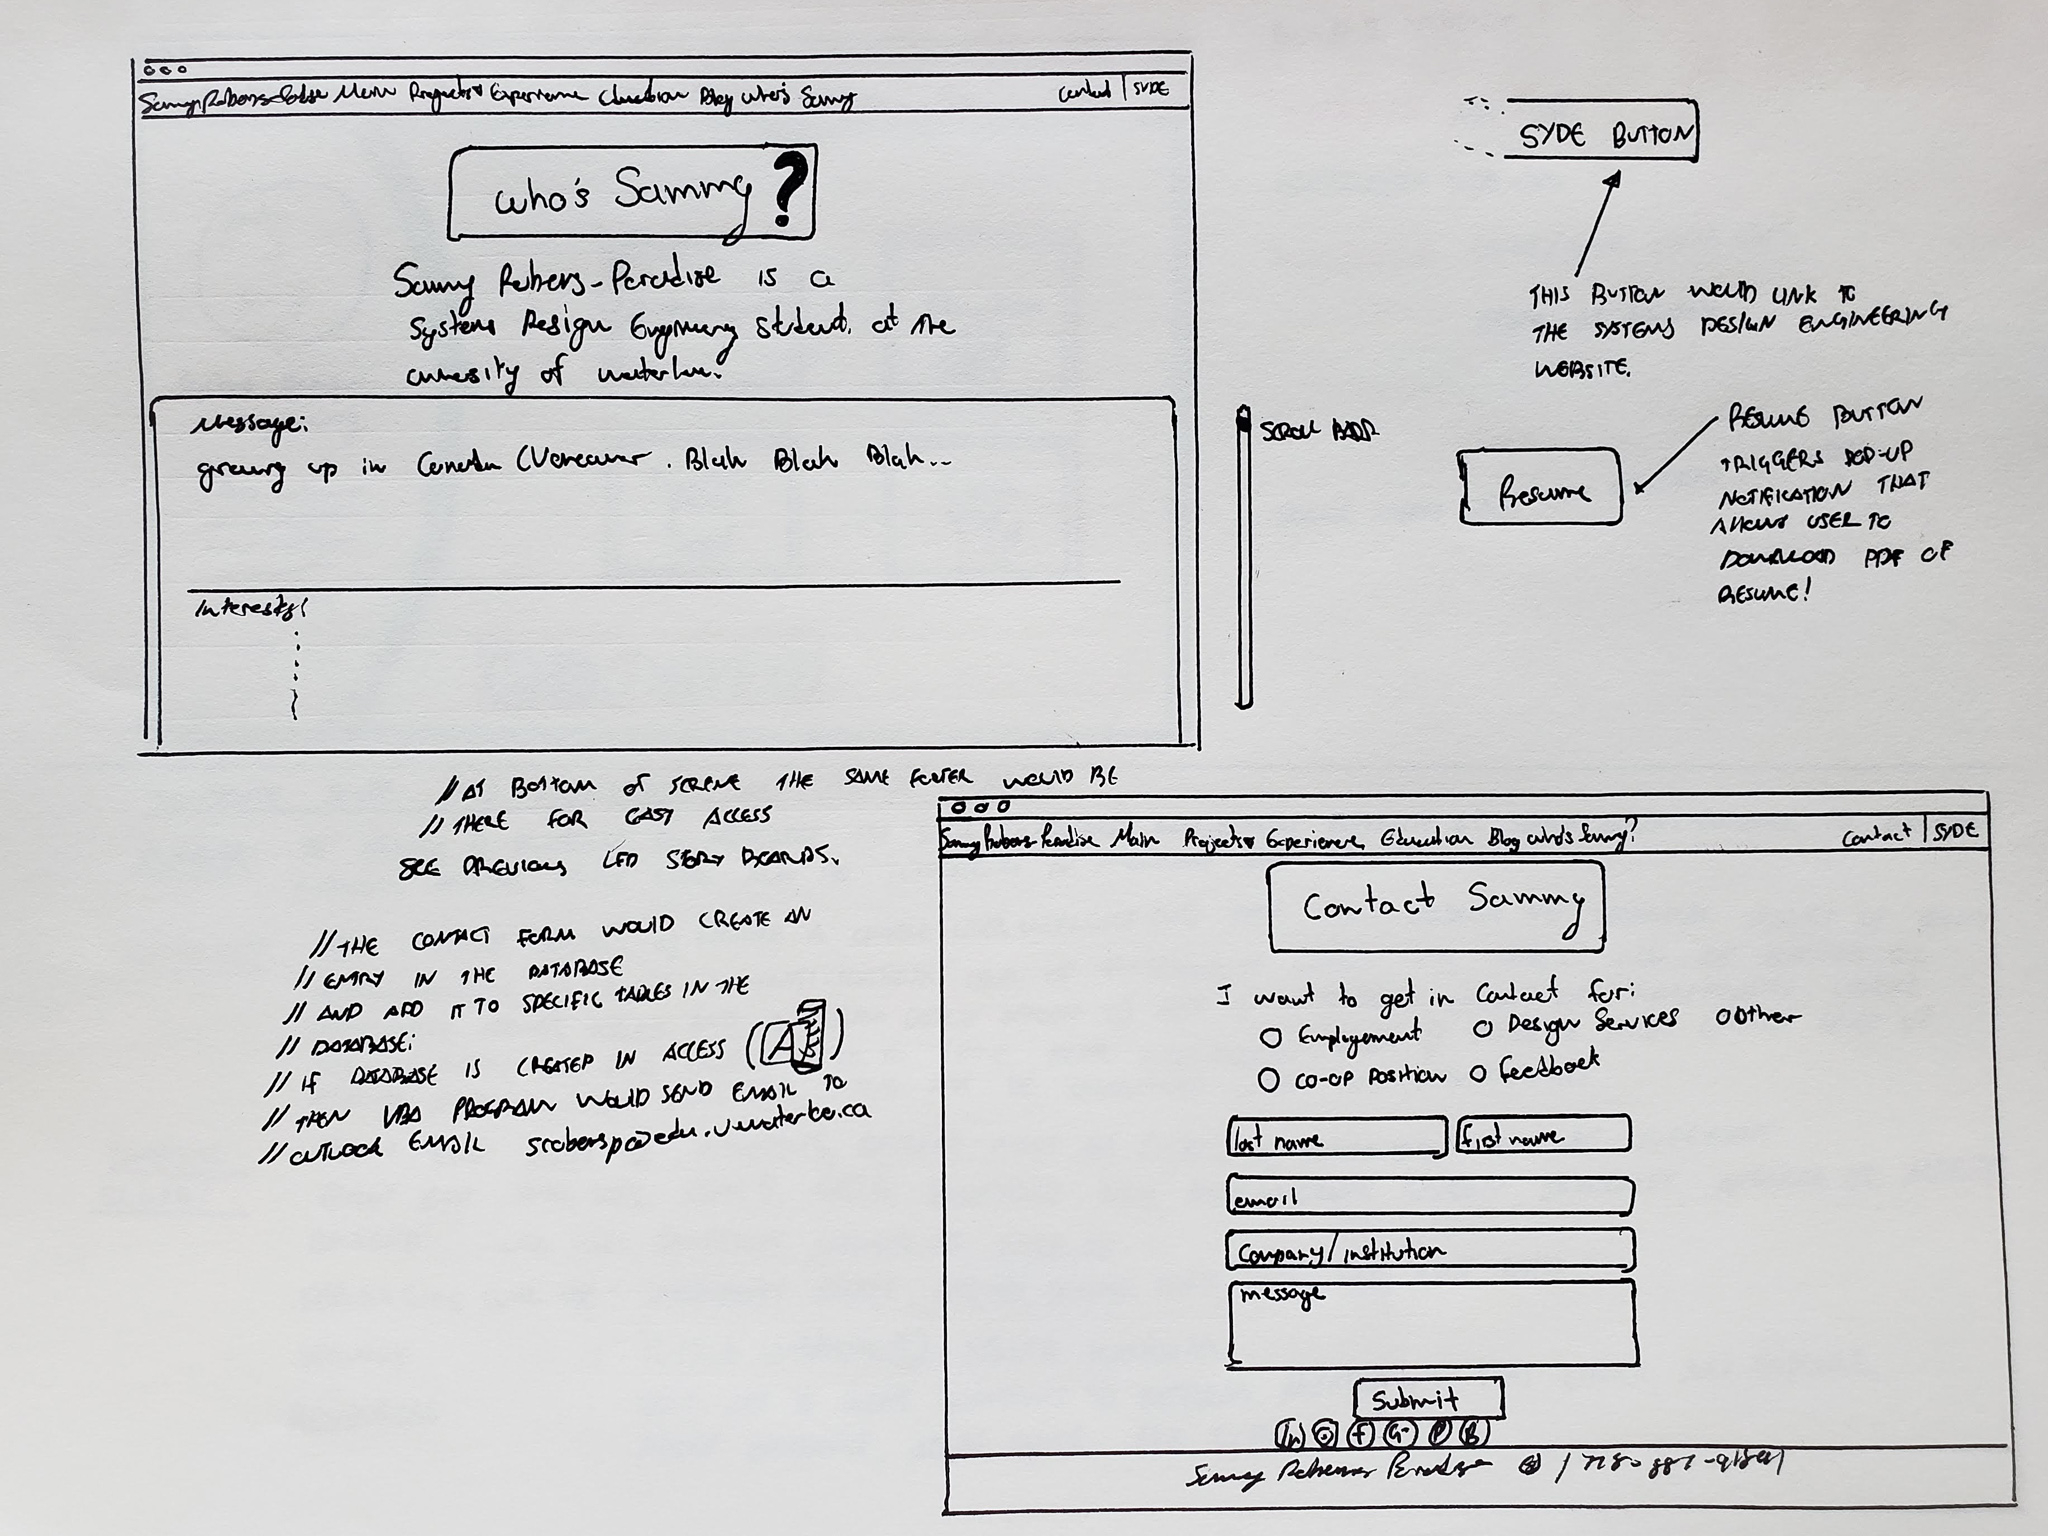 Sammy Robers-Paradise Main Projects Experience Education Blog who's Sammy
Contact SYDE
who's Sammy?
Sammy Robers-Paradise is a
Systems Design Engineering student. at the
university of waterloo.
Message:
growing up in Canada (Vancouver. Blah Blah Blah...
Interests:
SCROLL BARR
SYDE BUTTON
THIS BUTTON WOULD LINK TO
THE SYSTEMS DESIGN ENGINEERING
WEBSITE.
Resume
RESUME BUTTON
TRIGGERS POP-UP
NOTIFICATION THAT
ALLOWS USER TO
DOWNLOAD PDF OF
RESUME!
// AT BOTTOM OF SCREEN THE SAME FOOTER WOULD BE
// THERE FOR EASY ACCESS
SEE PREVIOUS STORY BOARDS.
// THE CONTACT FORM WOULD CREATE AN
// ENTRY IN THE DATABASE
// AND ADD IT TO SPECIFIC TABLES IN THE
// DATABASE:
// IF DATABASE IS CREATED IN ACCESS (A)
// THEN VBA PROGRAM WOULD SEND EMAIL TO
// OUTLOOK EMAIL
Sammy Robers-Paradise Main Projects Experience Education Blog who's Sammy?
Contact SYDE
Contact Sammy
I want to get in Contact for:
Employement Design Services Other
CO-OP POSITION Feedback
last name first name
email
Company/institution
message
Submit
in f G+ P B
Sammy Robers Paradise